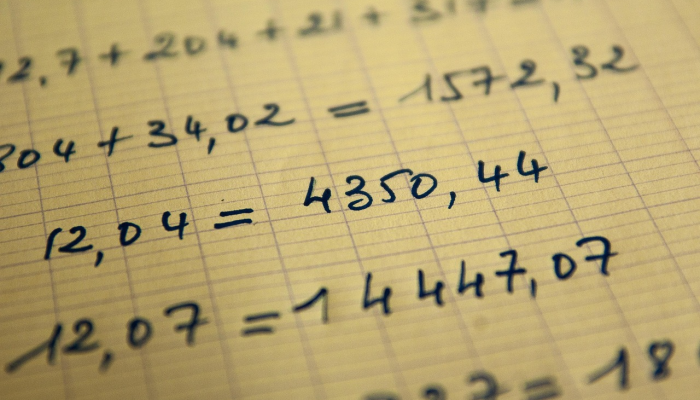 2,7 + 204 + 21 + 317
304 + 34,02 = 1572,32
12,04 = 4350,44
12,07 = 14447,07
= 18